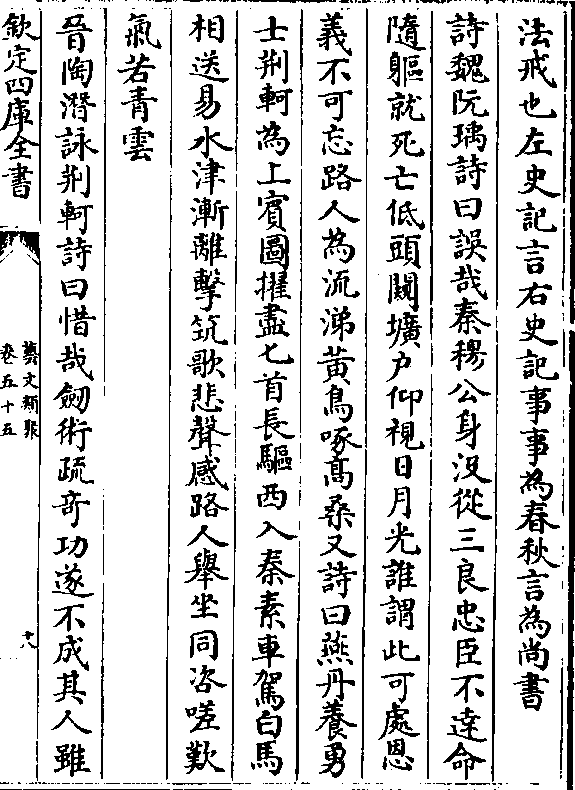 法戒也左史記言右史記事事為春秋言為尚書
詩魏阮瑀詩曰誤哉秦穆公身沒從三良忠臣不逹命
隨軀就死亡低頭闚壙户仰視日月光誰謂此可處恩
義不可忘路人為流涕黃鳥啄髙桑又詩曰燕丹養勇
士荆軻為上賓圖擢盡匕首長驅西入秦素車駕白馬
相送易水津漸離擊筑歌悲聲感路人舉坐同咨嗟歎
氣若青雲
晉陶潛詠荆軻詩曰惜哉劒術疏奇功遂不成其人雖
欽定四庫全書
藝文類聚
卷五十五
十八